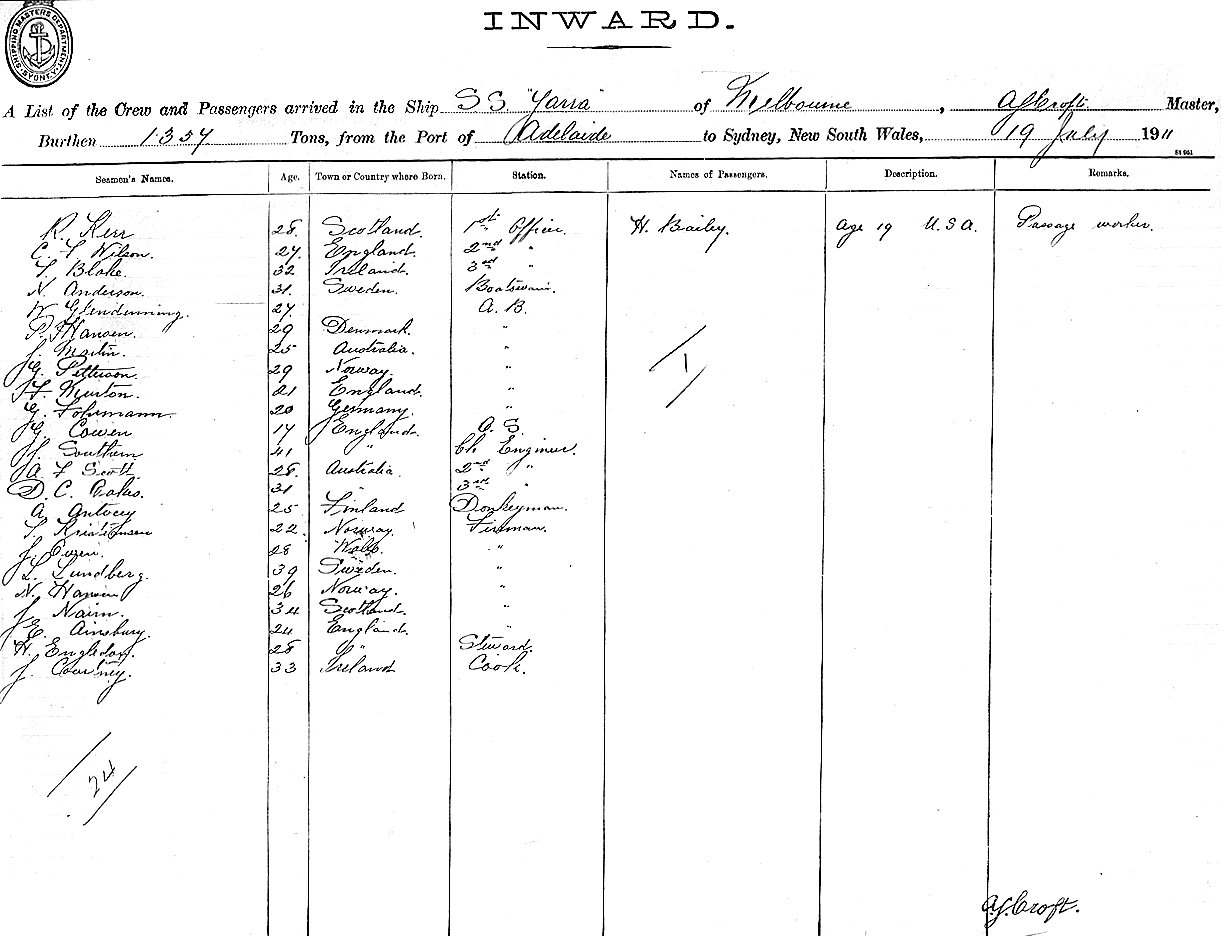 SHIPPING MASTERS DEPARTMENT. SYDNEY.
INWARD.
A List of the Crew and Passengers arrived in the Ship S S "Yarra" of Melbourne, A J Croft Master,
Burthen 1357 Tons, from the Port of Adelaide to Sydney, New South Wales, 19 July 1911
Seamen's Names. Age. Town or Country where Born. Station. Names of Passengers. Description. Remarks.
R. Kerr 28. Scotland. 1st Officer. H. Bailey. Age 19 U.S.A. Passage worker.
C. F. Wilson. 27. England. 2nd "
T. Blake. 32 Ireland. 3rd "
N. Anderson. 31. Sweden. Boatswain.
W. Glendenning. 27. A. B.
P. Hansen. 29 Denmark. "
J. Martin. 25 Australia. "
G. Petterson. 29 Norway. "
F. Murton. 21 England. "
G. Fohrmann. 20 Germany. "
G. Cowen 17 England. O. S.
J. Southern 41 " Ch Engineer.
A. F Scott 28. Australia. 2nd "
D. C. 31 " 3rd "
A. 25 Finland Donkeyman.
22. Norway. Fireman.
J. Owen. 28 Wales. "
L. Lundberg. 39 Sweden. "
N. Hansen 26 Norway. "
J. Nairn. 34 Scotland. "
E. Ainsbury. 24 England. "
H. 28 " Steward.
J. Courtney. 33 Ireland Cook.
1
24
A.J. Croft.